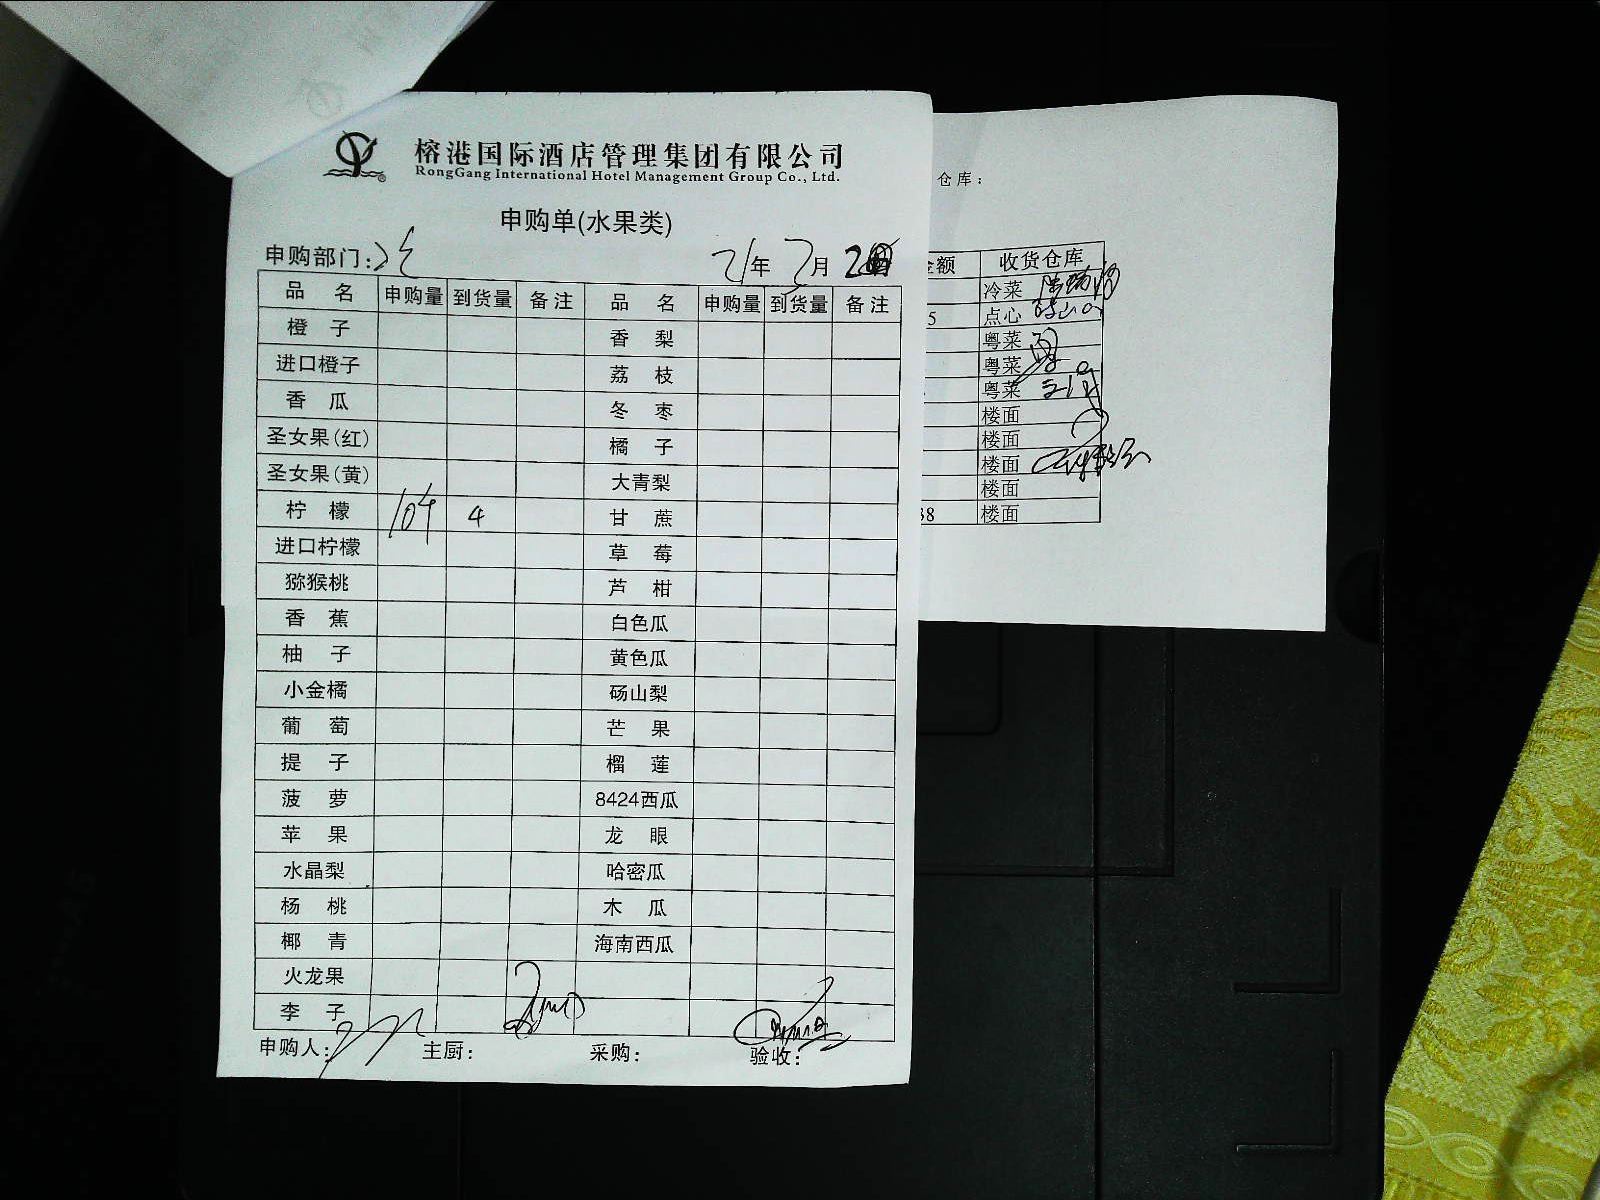 榕港国际酒店管理集团有限公司
RongGang International Hotel Management Group Co., Ltd.
申购单(水果类)
申购部门:
21年 月
品 名 申购量 到货量 备注 品 名 申购量 到货量 备注
橙 子 香 梨
进口橙子 荔 枝
香 瓜 冬 枣
圣女果(红) 橘 子
圣女果(黄) 大青梨
柠 檬 10个 4 甘 蔗
进口柠檬 草 莓
猕猴桃 芦 柑
香 蕉 白色瓜
柚 子 黄色瓜
小金橘 砀山梨
葡 萄 芒 果
提 子 榴 莲
菠 萝 8424西瓜
苹 果 龙 眼
水晶梨 哈密瓜
杨 桃 木 瓜
椰 青 海南西瓜
火龙果
李 子
申购人: 主厨: 采购: 验收:
仓库:
金额 收货仓库
冷菜
5 点心
粤菜
粤菜
粤菜
楼面
楼面
楼面
楼面
38 楼面